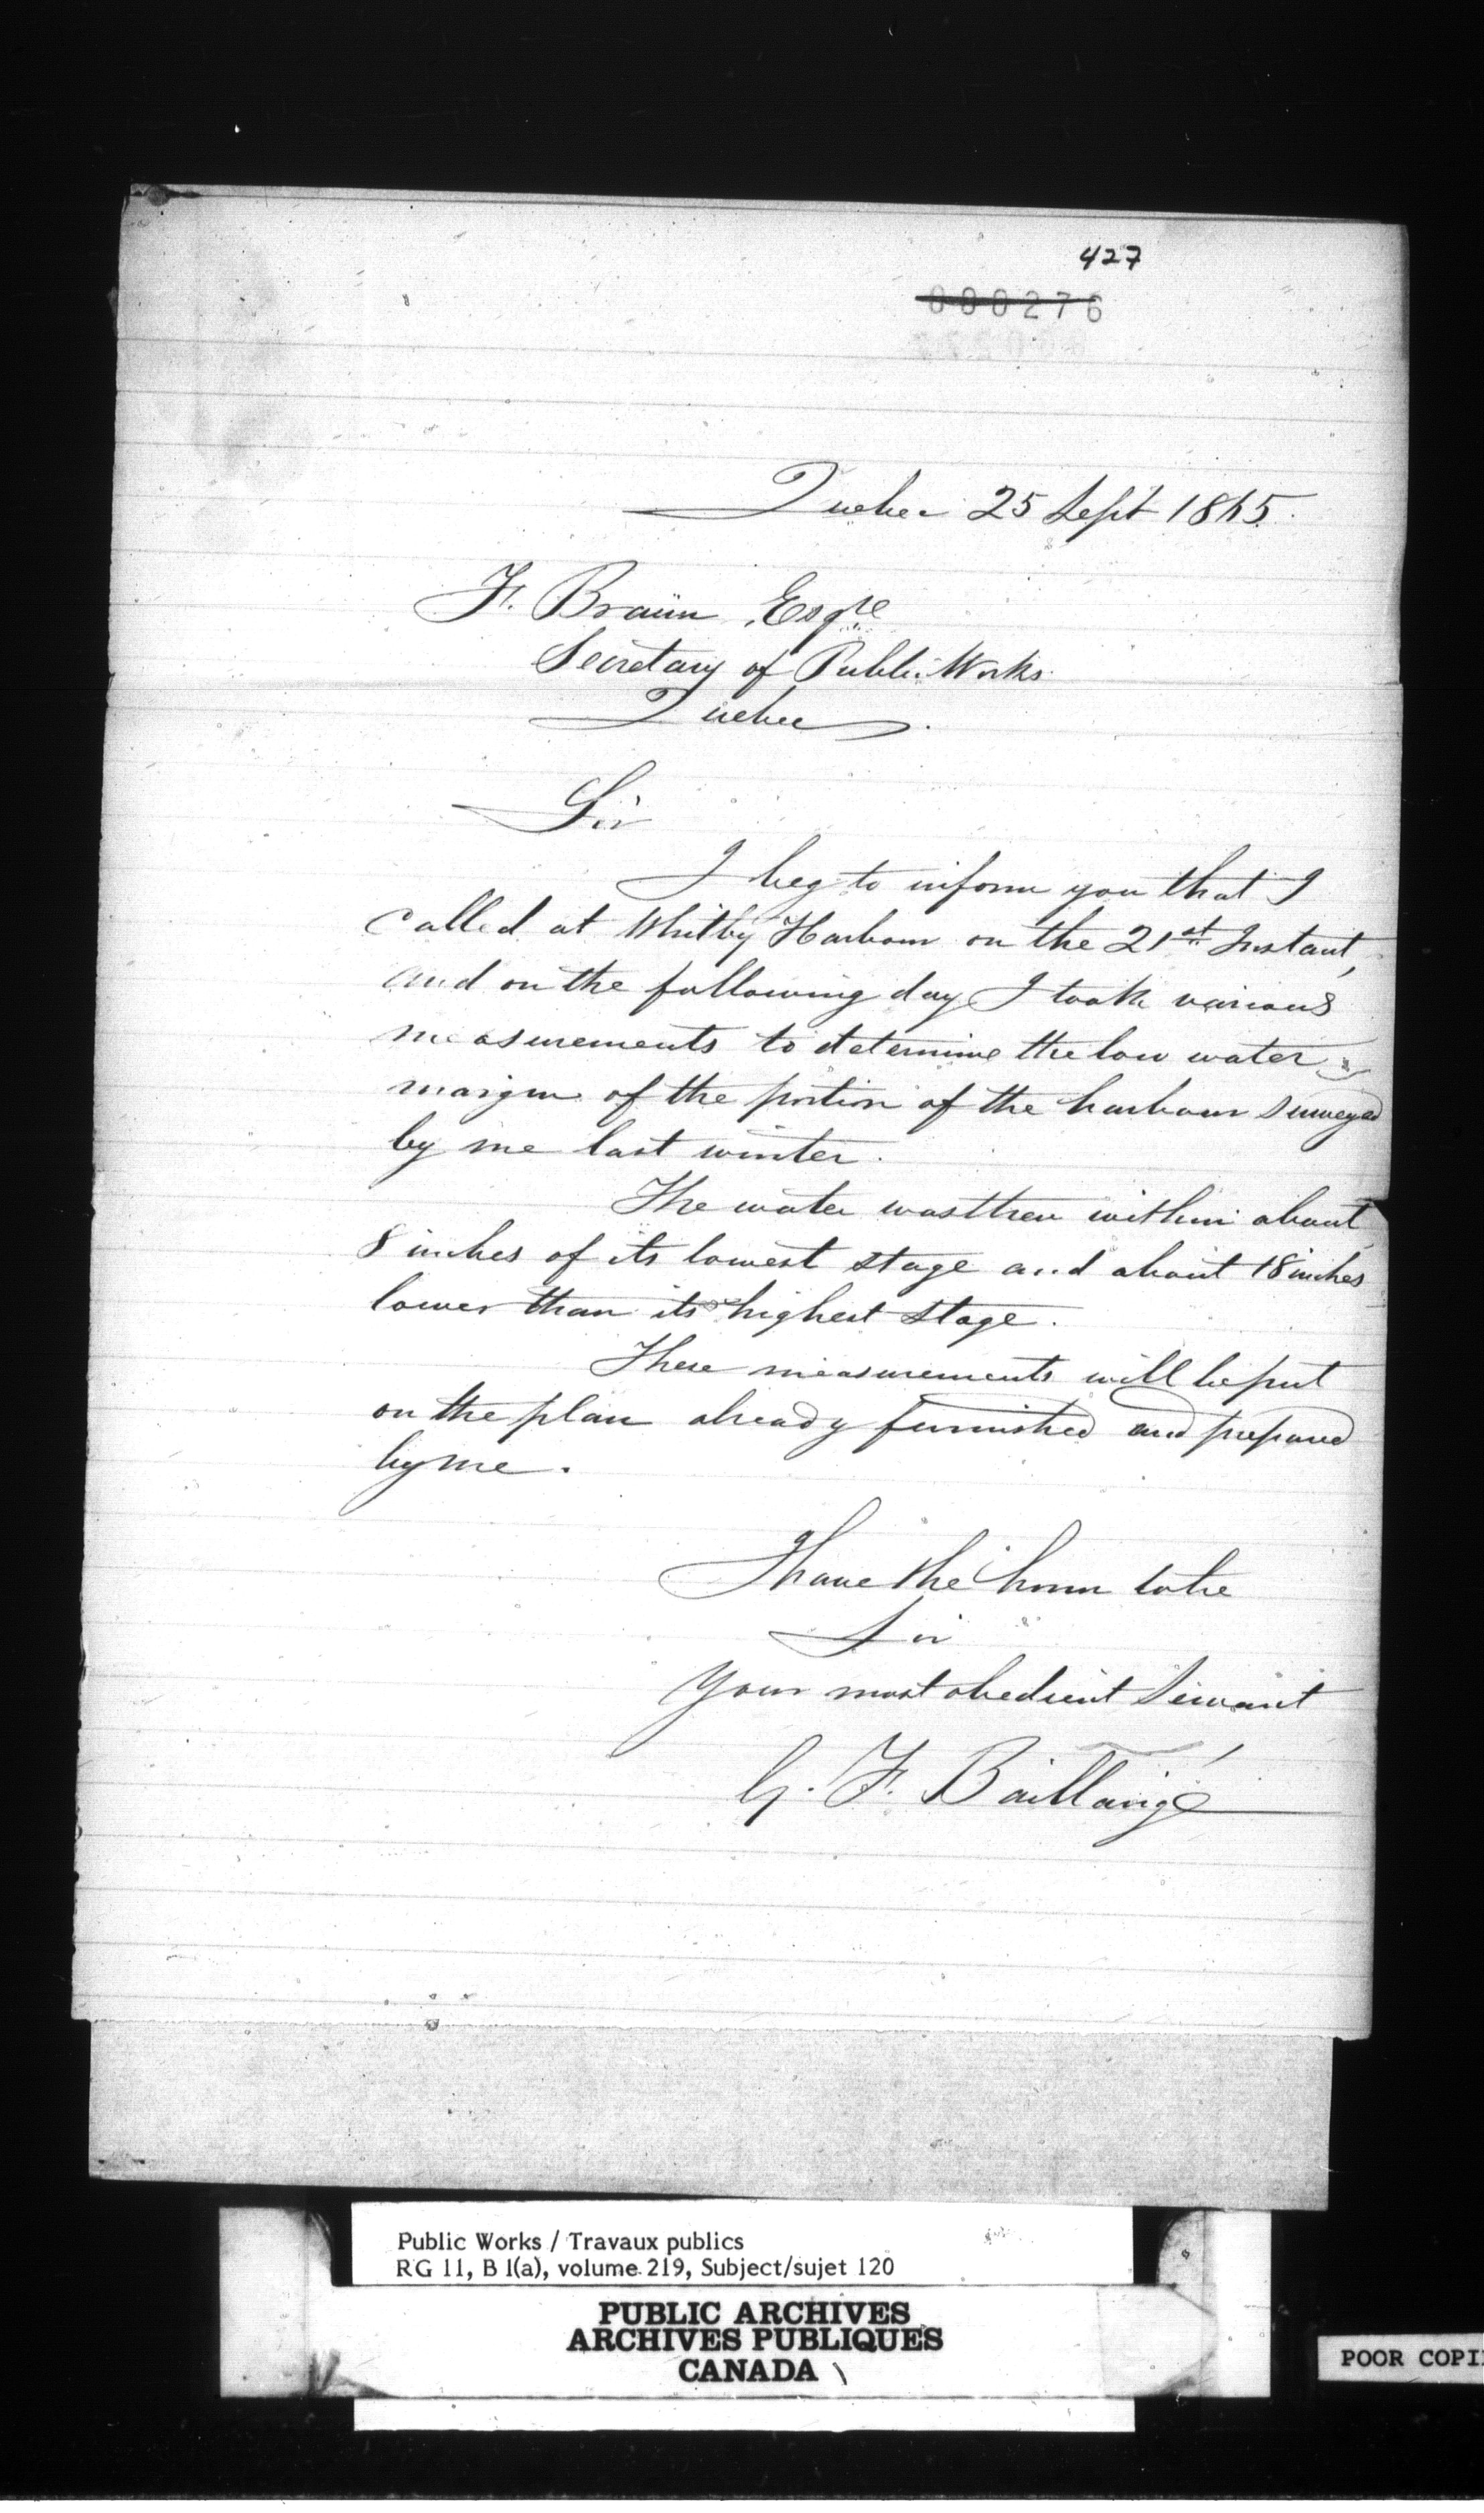 427
000276
Quebec 25 Sept 1865.
F. Braün Esqre
Secretary of Public Works
Quebec.
Sir
I beg to inform you that I
called at Whitby Harbour on the 21st Instant,
and on the following day I took various
measurements to determine the low water
margin of the portion of the harbour surveyed
by me last winter.
The water was then within about
8 inches of its lowest stage and about 18 inches
lower than its highest stage.
These measurements will be put
on the plan already furnished and prepared
by me.
I have the honor to be
Sir
Your most obedient Servant
G. F. Baillairgé
Public Works / Travaux publics
RG 11, B 1(a), volume 219, Subject/sujet 120
PUBLIC ARCHIVES
ARCHIVES PUBLIQUES
CANADA
POOR COPI